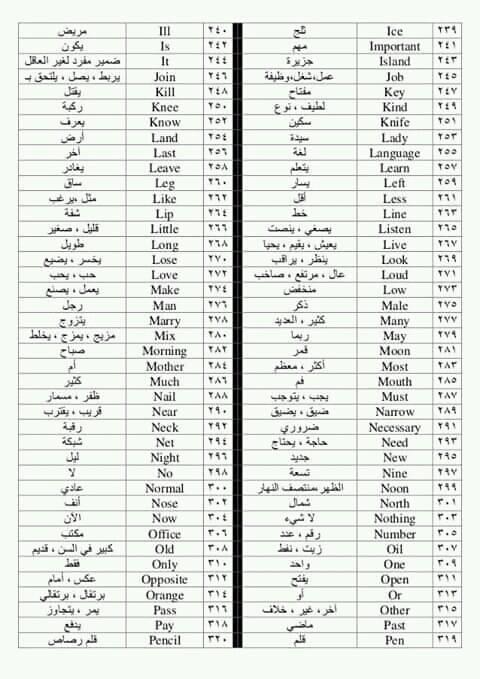 ٢٣٩ Ice ثلج ٢٤٠ Ill مريض
٢٤١ Important مهم ٢٤٢ Is يكون
٢٤٣ Island جزيرة ٢٤٤ It ضمير مفرد لغير العاقل
٢٤٥ Job عمل،شغل،وظيفة ٢٤٦ Join يربط ، يصل ، يلتحق بـ
٢٤٧ Key مفتاح ٢٤٨ Kill يقتل
٢٤٩ Kind لطيف ، نوع ٢٥٠ Knee ركبة
٢٥١ Knife سكين ٢٥٢ Know يعرف
٢٥٣ Lady سيدة ٢٥٤ Land أرض
٢٥٥ Language لغة ٢٥٦ Last أخر
٢٥٧ Learn يتعلم ٢٥٨ Leave يغادر
٢٥٩ Left يسار ٢٦٠ Leg ساق
٢٦١ Less أقل ٢٦٢ Like مثل ،يرغب
٢٦٣ Line خط ٢٦٤ Lip شفة
٢٦٥ Listen يصغي ، ينصت ٢٦٦ Little قليل ، صغير
٢٦٧ Live يعيش ، يقيم ، يحيا ٢٦٨ Long طويل
٢٦٩ Look ينظر ، يراقب ٢٧٠ Lose يخسر ، يضيع
٢٧١ Loud عال ، مرتفع ، صاخب ٢٧٢ Love حب ، يحب
٢٧٣ Low منخفض ٢٧٤ Make يعمل ، يصنع
٢٧٥ Male ذكر ٢٧٦ Man رجل
٢٧٧ Many كثير ، العديد ٢٧٨ Marry يتزوج
٢٧٩ May ربما ٢٨٠ Mix مزيج ، يمزج ، يخلط
٢٨١ Moon قمر ٢٨٢ Morning صباح
٢٨٣ Most أكثر ، معظم ٢٨٤ Mother أم
٢٨٥ Mouth فم ٢٨٦ Much كثير
٢٨٧ Must يجب ، يتوجب ٢٨٨ Nail ظفر ، مسمار
٢٨٩ Narrow ضيق ، يضيق ٢٩٠ Near قريب ، يقترب
٢٩١ Necessary ضروري ٢٩٢ Neck رقبة
٢٩٣ Need حاجة ، يحتاج ٢٩٤ Net شبكة
٢٩٥ New جديد ٢٩٦ Night ليل
٢٩٧ Nine تسعة ٢٩٨ No لا
٢٩٩ Noon الظهر ،منتصف النهار ٣٠٠ Normal عادي
٣٠١ North شمال ٣٠٢ Nose أنف
٣٠٣ Nothing لا شيء ٣٠٤ Now الآن
٣٠٥ Number رقم ، عدد ٣٠٦ Office مكتب
٣٠٧ Oil زيت ، نفط ٣٠٨ Old كبير في السن ، قديم
٣٠٩ One واحد ٣١٠ Only فقط
٣١١ Open يفتح ٣١٢ Opposite عكس ، أمام
٣١٣ Or أو ٣١٤ Orange برتقال ، برتقالي
٣١٥ Other أخر، غير ، خلاف ٣١٦ Pass يمر ، يتجاوز
٣١٧ Past ماضي ٣١٨ Pay يدفع
٣١٩ Pen قلم ٣٢٠ Pencil قلم رصاص